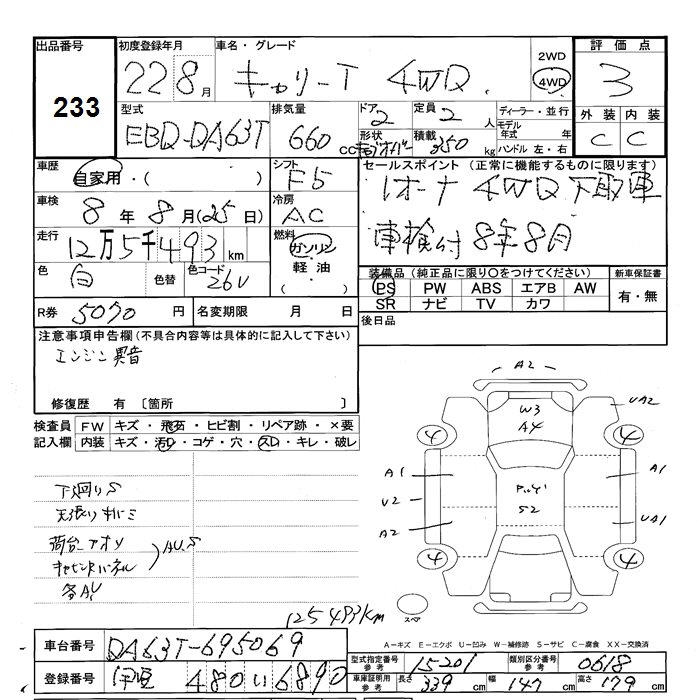 出品番号 初度登録年月 車名・グレード 2WD 評価点
233 22 8月 キャリーT 4WD 4WD 3
型式 排気量 ドア 定員 ディーラー・並行 外装 内装
EBD-DA63T 660 cc 2 2人 モデル年式 年 C C
形状 積載 350 kg ハンドル 左・右
車歴 シフト セールスポイント (正常に機能するものに限ります)
自家用・( ) F5 1オーナ 4WD 下取車
車検 冷房 車検付 8年8月
8年 8月(25日) AC
走行 燃料
12万5千493km ガソリン・軽油・( )
色 色替 色コード 装備品(純正品に限り○をつけてください) 新車保証書
白 26U PS PW ABS エアB AW 有・無
SR ナビ TV カワ
R券 5070円 名変期限 月 日 後日品
注意事項申告欄(不具合内容等は具体的に記入して下さい)
エンジン異音
修復歴 有〔箇所 〕
検査員 FW キズ・飛石・ヒビ割・リペア跡・×要
記入欄 内装 キズ・汚れ・コゲ・穴・スレ・キレ・破レ
A2
W3 UA2
A4
4 4
A1 A1
U2
S2
A2 UA1
4 4
スペア
下廻りS
天張りキバミ
荷台_アオリ
キャビンバックパネル
AU.S
各AU
125493km
A=キズ E=エクボ U=凹み W=補修跡 S=サビ C=腐食 XX=交換済
車台番号 DA63T-695069
型式指定番号 参考 15201 類別区分番号 参考 0618
登録番号 伊豆 480 い 6890
車庫証明用 参考 長さ 339cm 幅 147cm 高さ 179cm